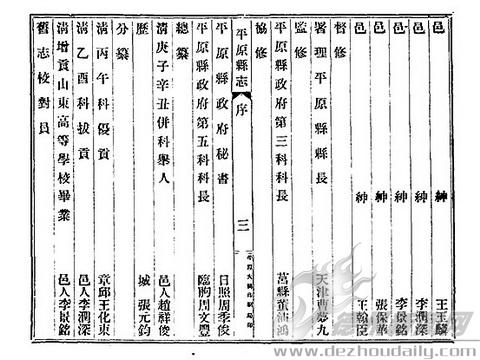 邑 紳 王玉麟
邑 紳 李潤深
邑 紳 李景銘
邑 紳 張保華
邑 紳 王翰臣
督修
署理平原縣縣長 天津曹夢九
監修
平原縣政府第三科科長 莒縣董
協修
平原縣志 序 三
平原縣政府秘書 日照周季俊
平原縣政府第五科科長 臨朐周文豐
總纂
清庚子辛丑併科舉人 邑人趙祥俊
歷 城 張元鈞
分纂
清丙午科優貢 章邱王化東
清乙酉科拔貢 邑人李潤深
清增貢山東高等學校畢業 邑人李景銘
舊志校對員
www.dezhoudaily.com